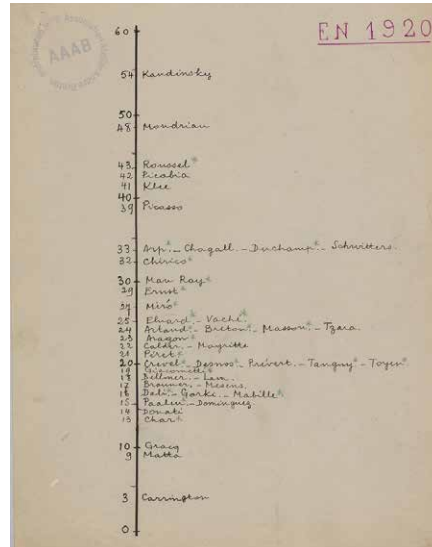 EN 1920
AAAB
60
54 Kandinsky
50
48 Mondrian
43 Roussel*
42 Picabia
41 Klee
40
39 Picasso
33 Arp* - Chagall - Duchamp* - Schwitters
32 Chirico*
30 Man Ray*
29 Ernst*
27 Miró*
25 Eluard* - Vaché*
24 Artaud* - Breton* - Masson* - Tzara
23 Aragon*
22 Calder - Magritte
21 Péret*
20 Crevel* - Desnos* - Prévert - Tanguy* - Toyen*
19 Giacometti*
18 Bellmer - Lam
17 Brauner - Mesens
16 Dali* - Gorki - Mabille*
15 Paalen - Dominguez
14 Donati
13 Char*
10 Gracq
9 Matta
3 Carrington
0